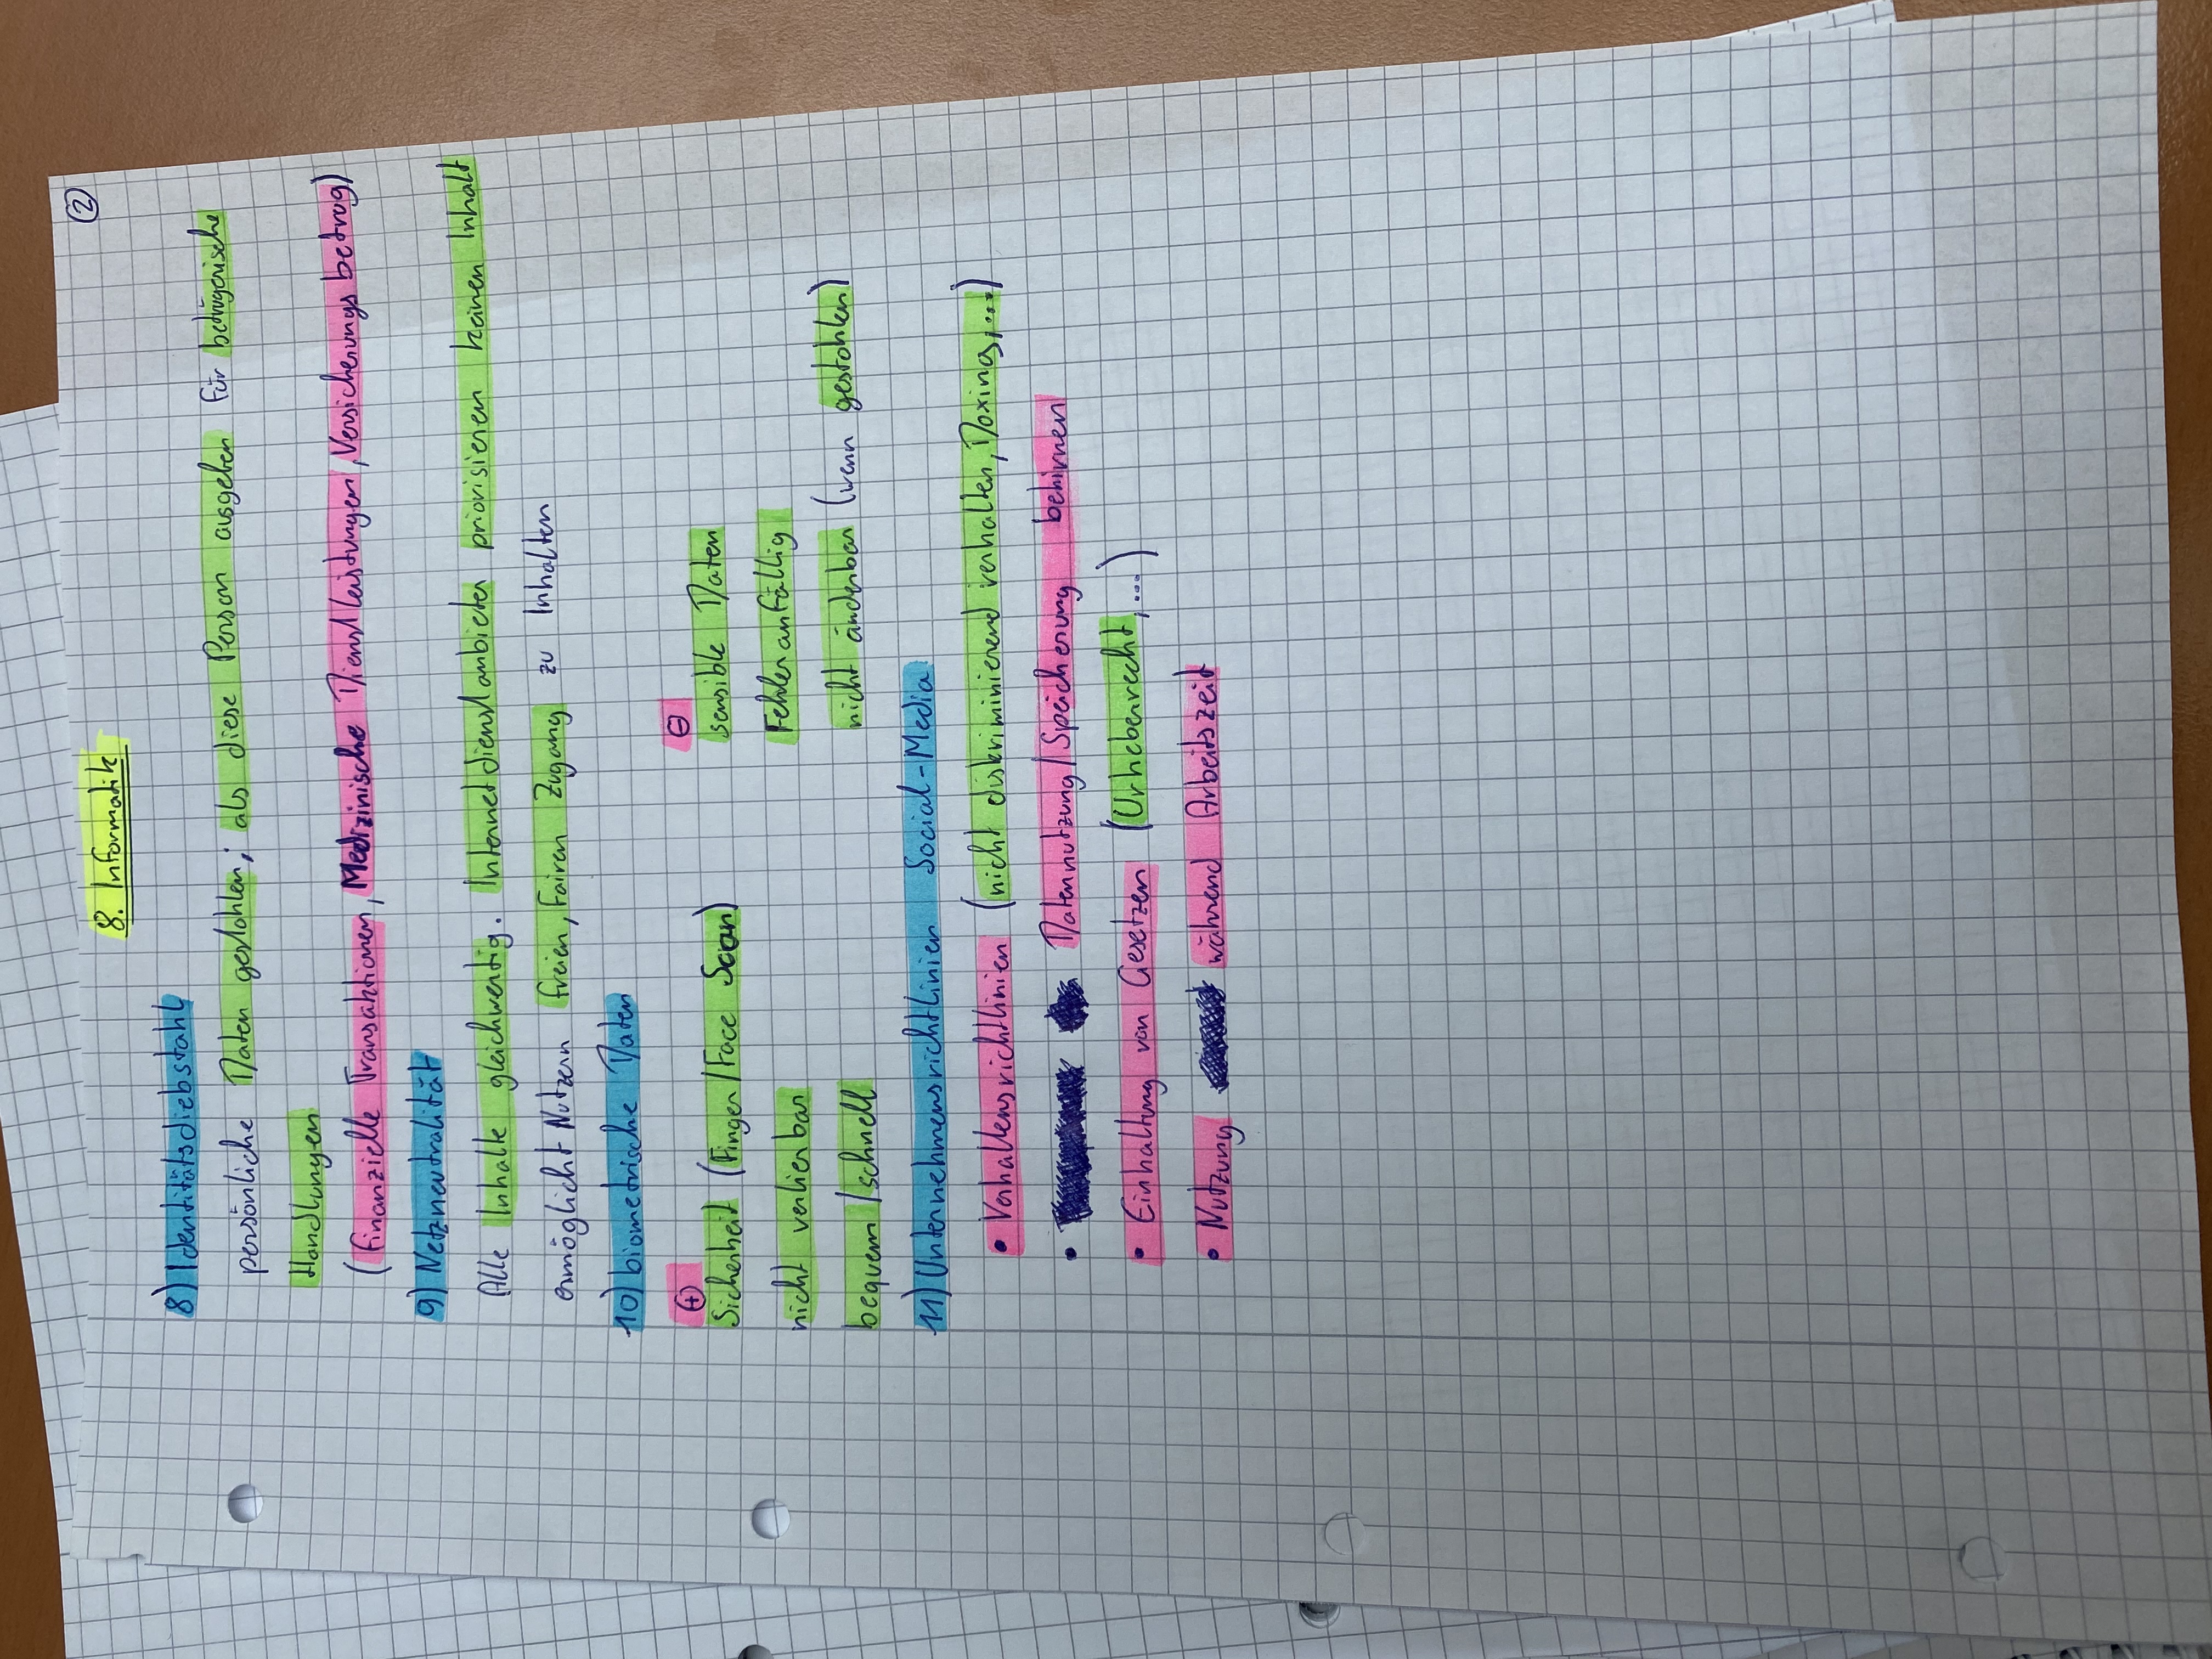 ②
8. Informatik
8) Identitätsdiebstahl
persönliche Daten gestohlen; als diese Person ausgeben für betrügerische
Handlungen
(finanzielle Transaktionen, Medizinische Dienstleistungen, Versicherungsbetrug)
9) Netzneutralität
Alle Inhalte gleichwertig. Internetdienstanbieter priorisieren keinen Inhalt
ermöglicht Nutzern freien, fairen Zugang zu Inhalten
10) biometrische Daten
⊕ ⊖
Sicherheit (Finger/Face Scan) sensible Daten
nicht verlierbar Fehleranfällig
bequem/schnell nicht änderbar (wenn gestohlen)
11) Unternehmensrichtlinien Social-Media
• Verhaltensrichtlinien (nicht diskriminierend verhalten, Doxing,...)
• Datennutzung/Speicherung
• Einhaltung von Gesetzen (Urheberrecht,...)
• Nutzung während Arbeitszeit